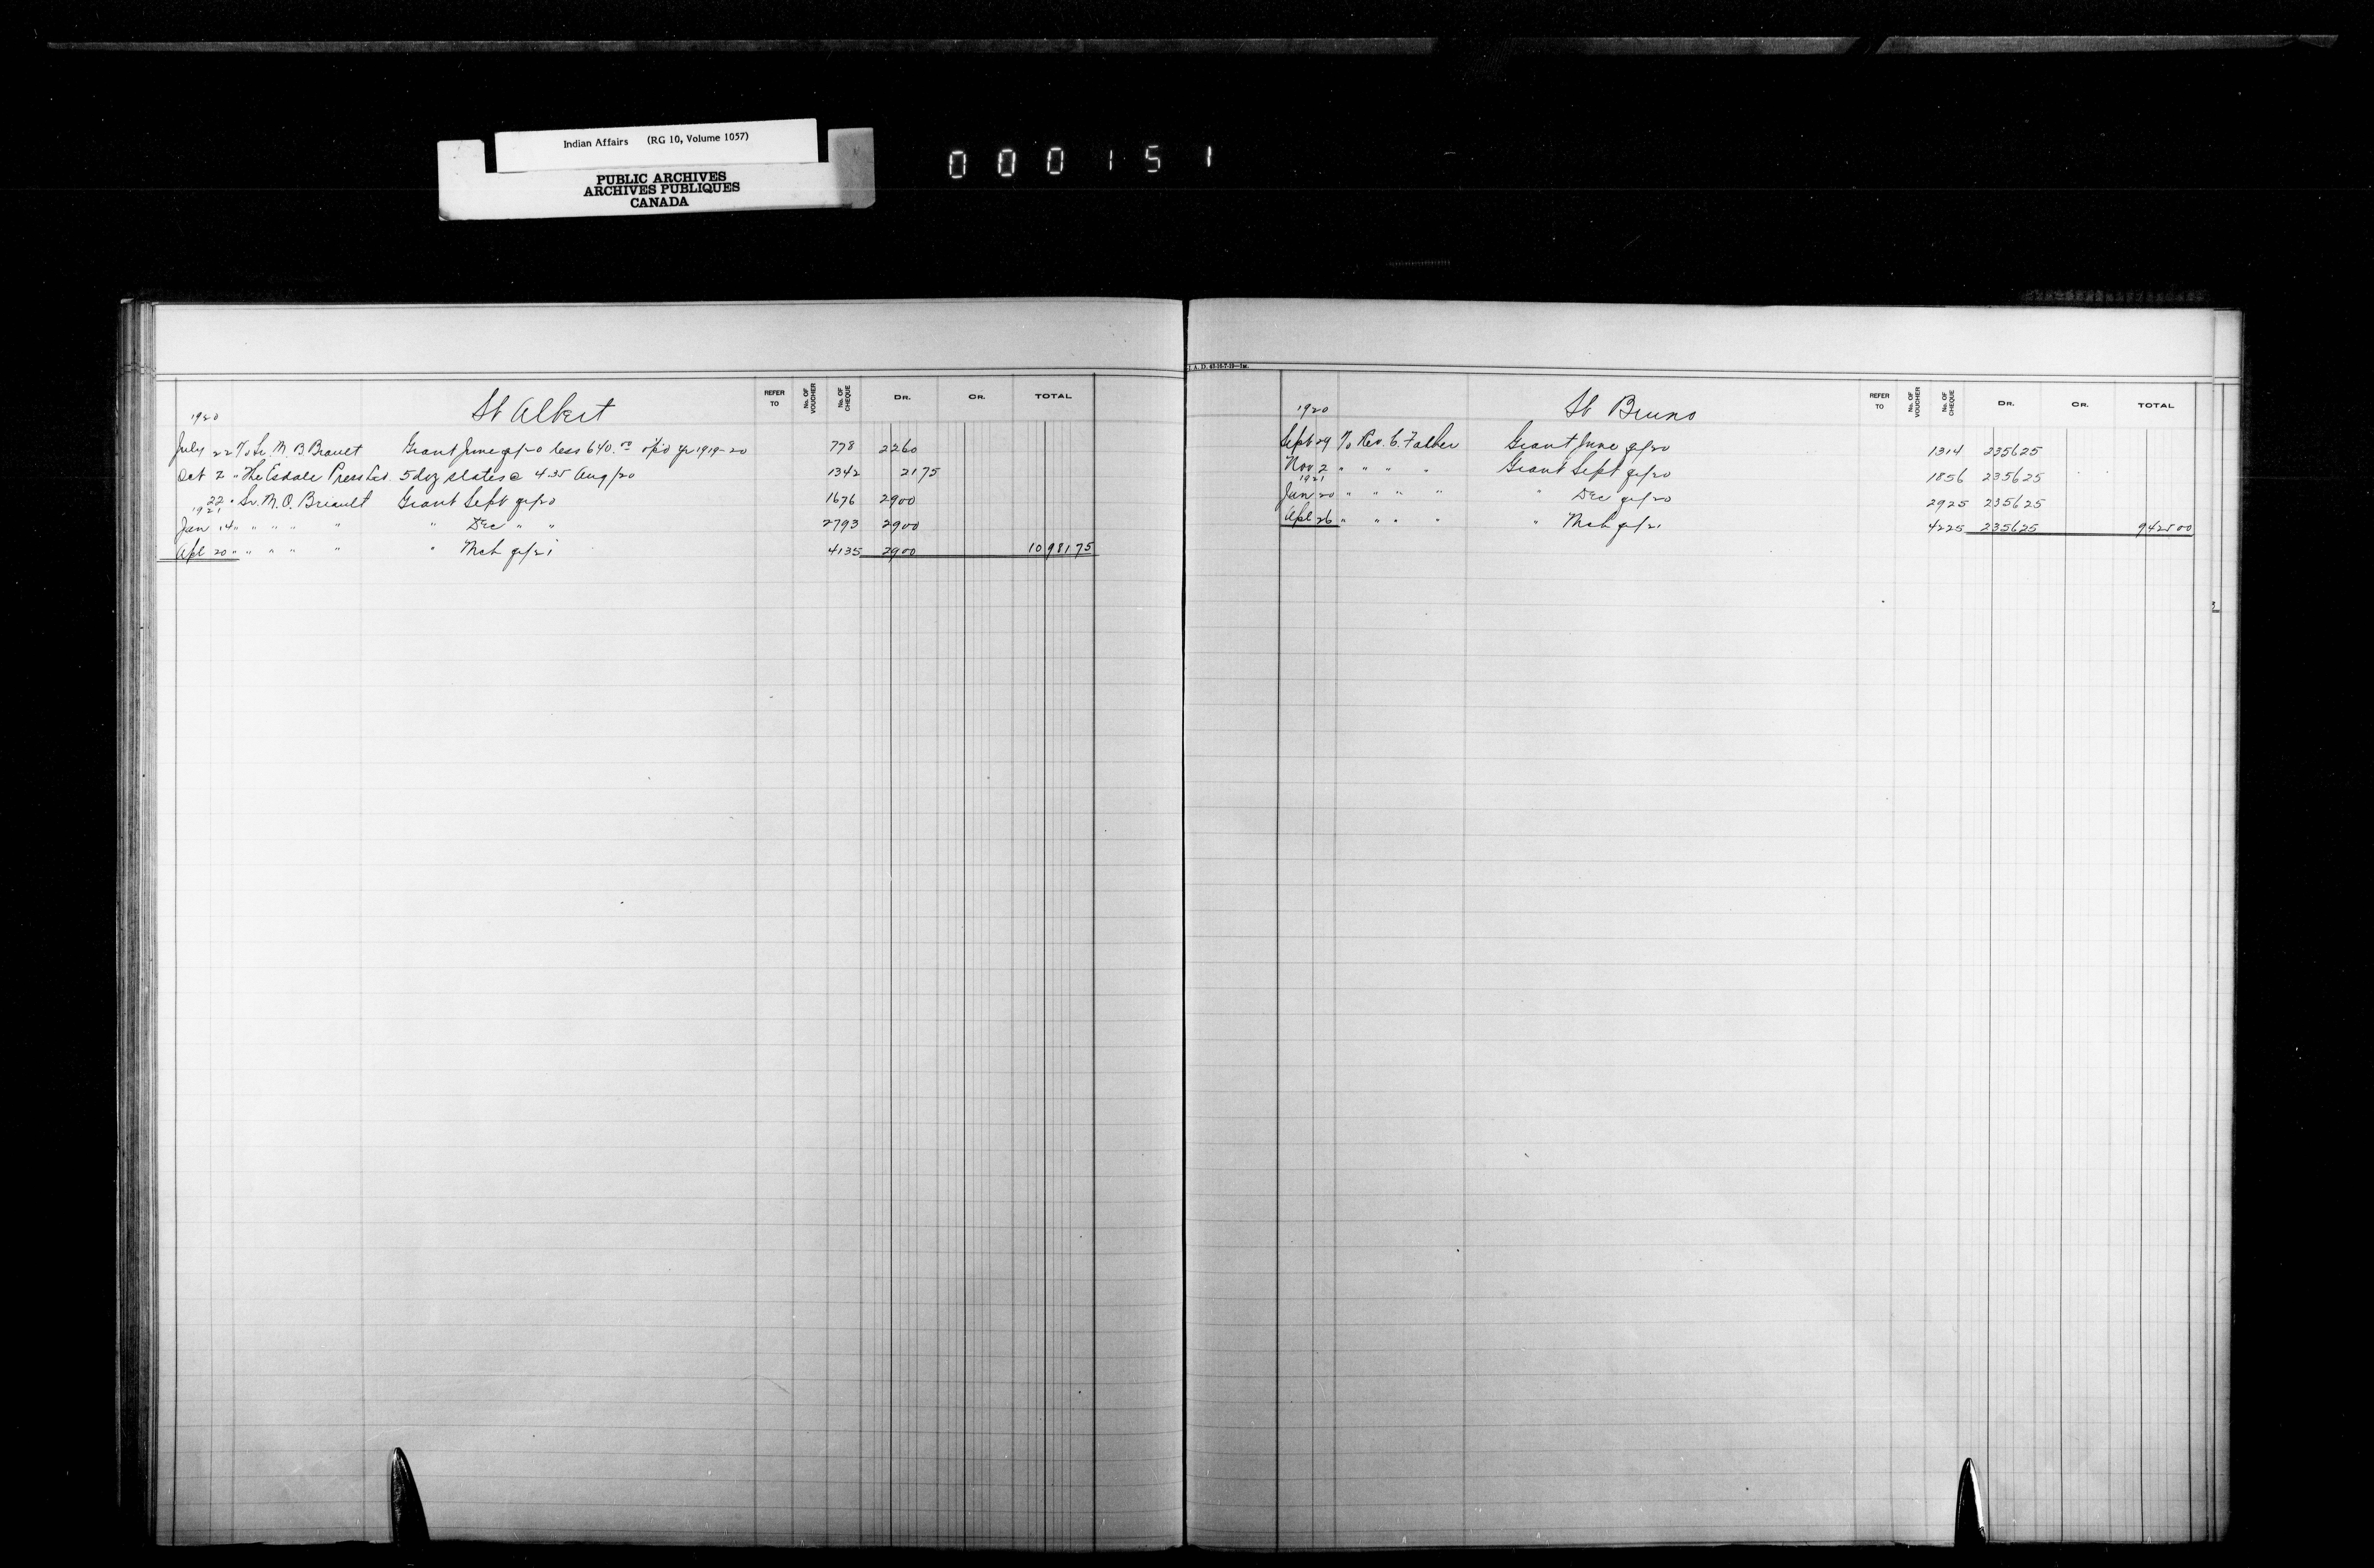 Indian Affairs (RG 10, Volume 1057)
PUBLIC ARCHIVES
ARCHIVES PUBLIQUES
CANADA
000151
St Albert
REFER TO No. OF VOUCHER No. OF CHEQUE DR. CR. TOTAL
1920
July 22 To Sr. M. B. Brault Grant June q/20 less 640.00 o/p'd yr 1919-20 778 2260
Oct 2 " The Esdale Press Ltd. 5 doz slates @ 4.35 Aug/20 1342 21 75
22 " Sr. M. O. Briault Grant Sept q/20 1676 2900
1921
Jan 14 " " " " " " Dec " " 2793 2900
Apl 20 " " " " " " Mch q/21 4135 2900 10981 75
I. A. D. 43-10-7-19—1M.
St Bruno
REFER TO No. OF VOUCHER No. OF CHEQUE DR. CR. TOTAL
1920
Sept 29 To Rev. C. Falher Grant June q/20 1314 2356 25
Nov 2 " " " " Grant Sept q/20 1856 2356 25
1921
Jan 20 " " " " " Dec q/20 2925 2356 25
Apl 26 " " " " " Mch q/21 4225 2356 25 9425 00